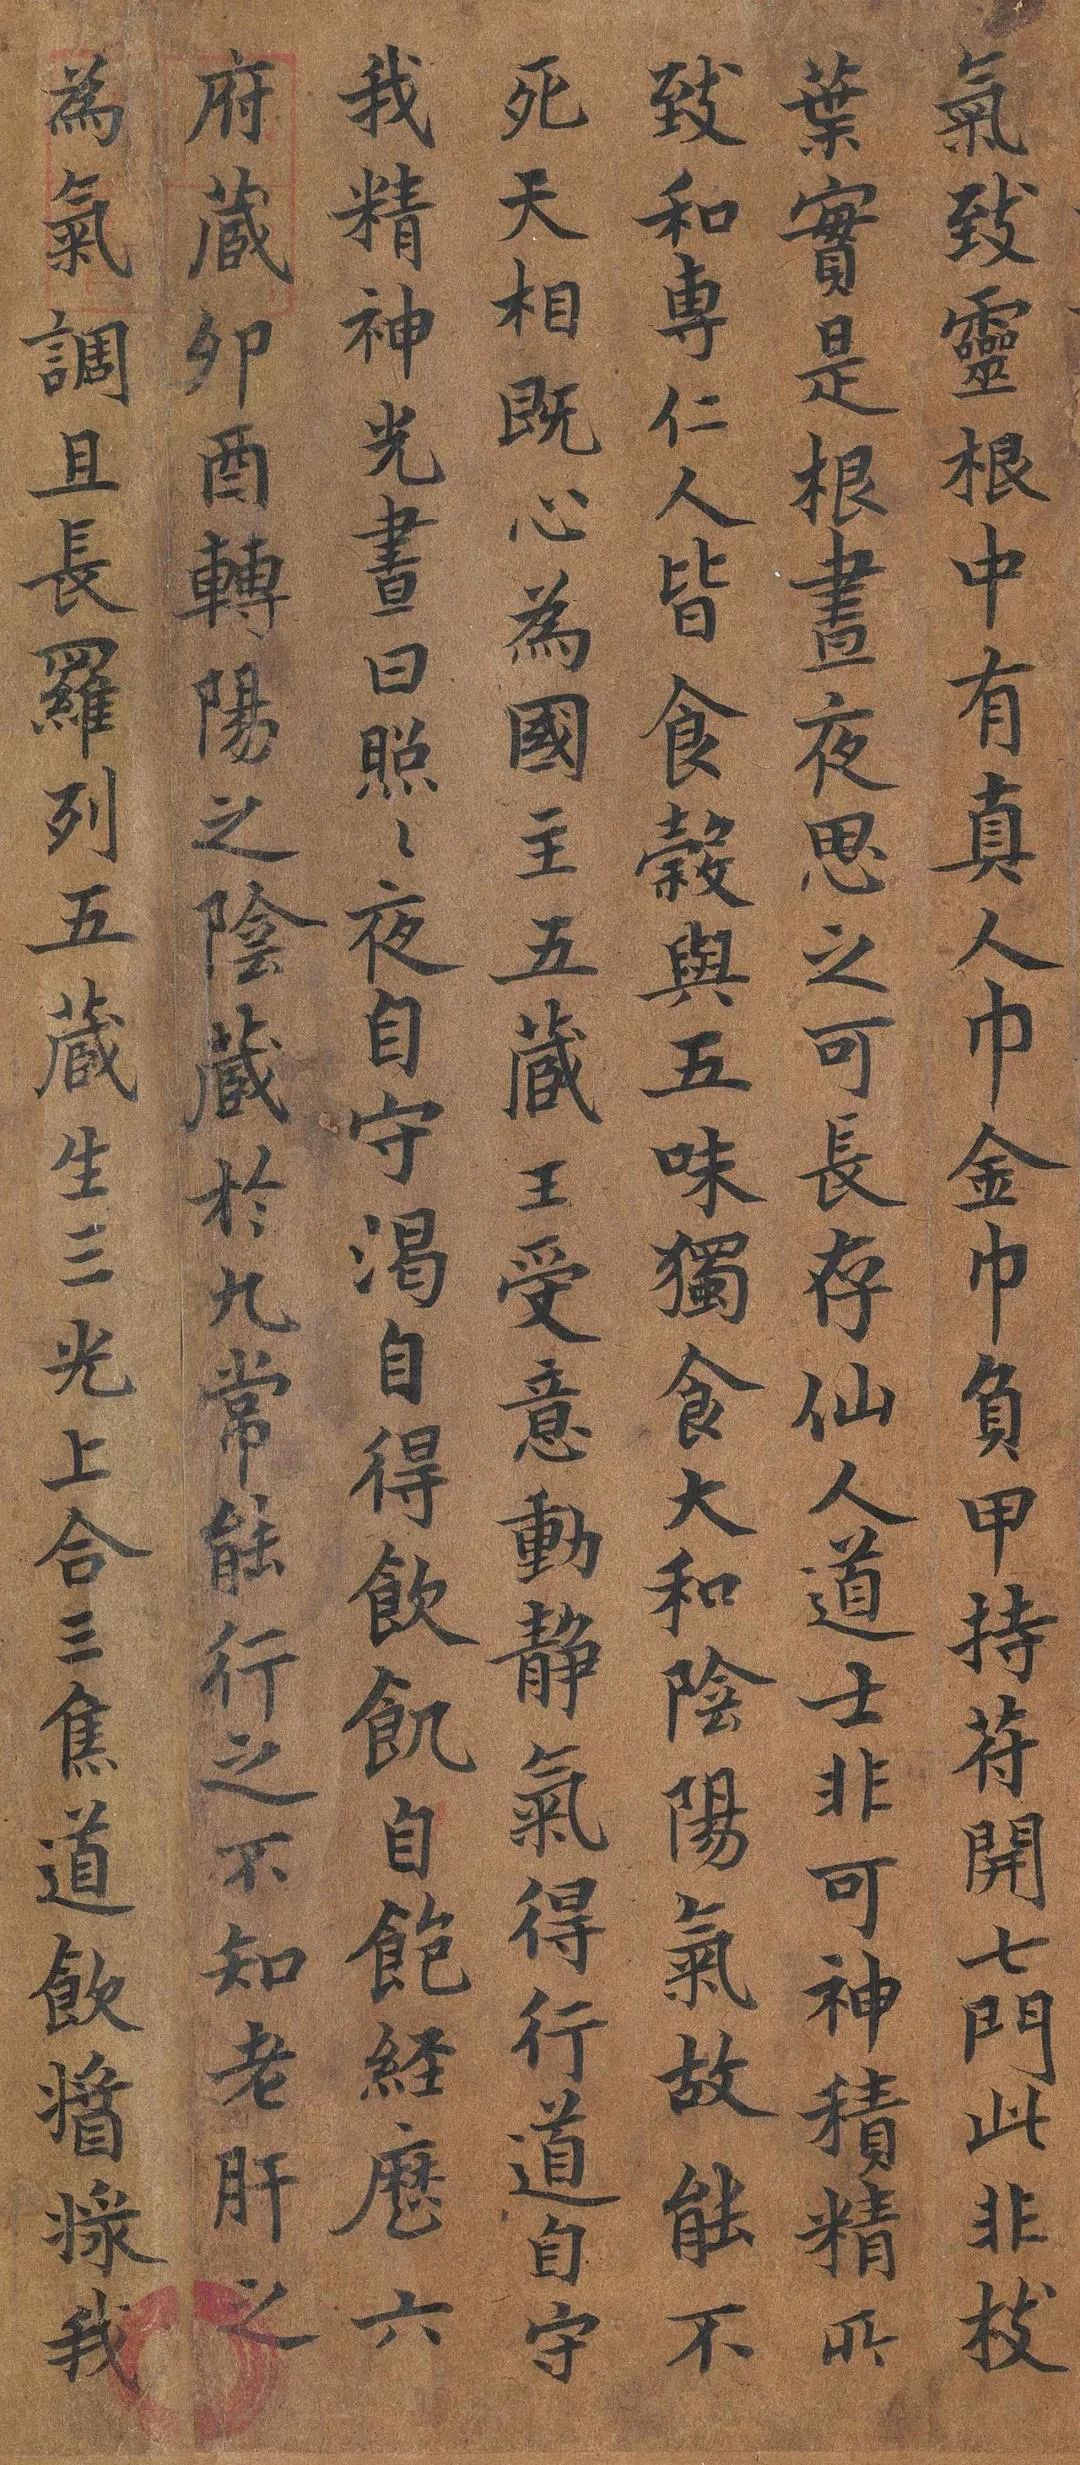 氣致靈根中有真人巾金巾負甲持苻開七門此非枝
葉實是根晝夜思之可長存仙人道士非可神積精所
致和專仁人皆食穀與五味獨食大和陰陽氣故能不
死天相既心為國主五蔵王受意動静氣得行道自守
我精神光晝日照〻夜自守渴自得飲飢自飽経歷六
府蔵卯酉轉陽之陰蔵於九常能行之不知老肝之
為氣調且長羅列五蔵生三光上合三焦道飲醬漿我